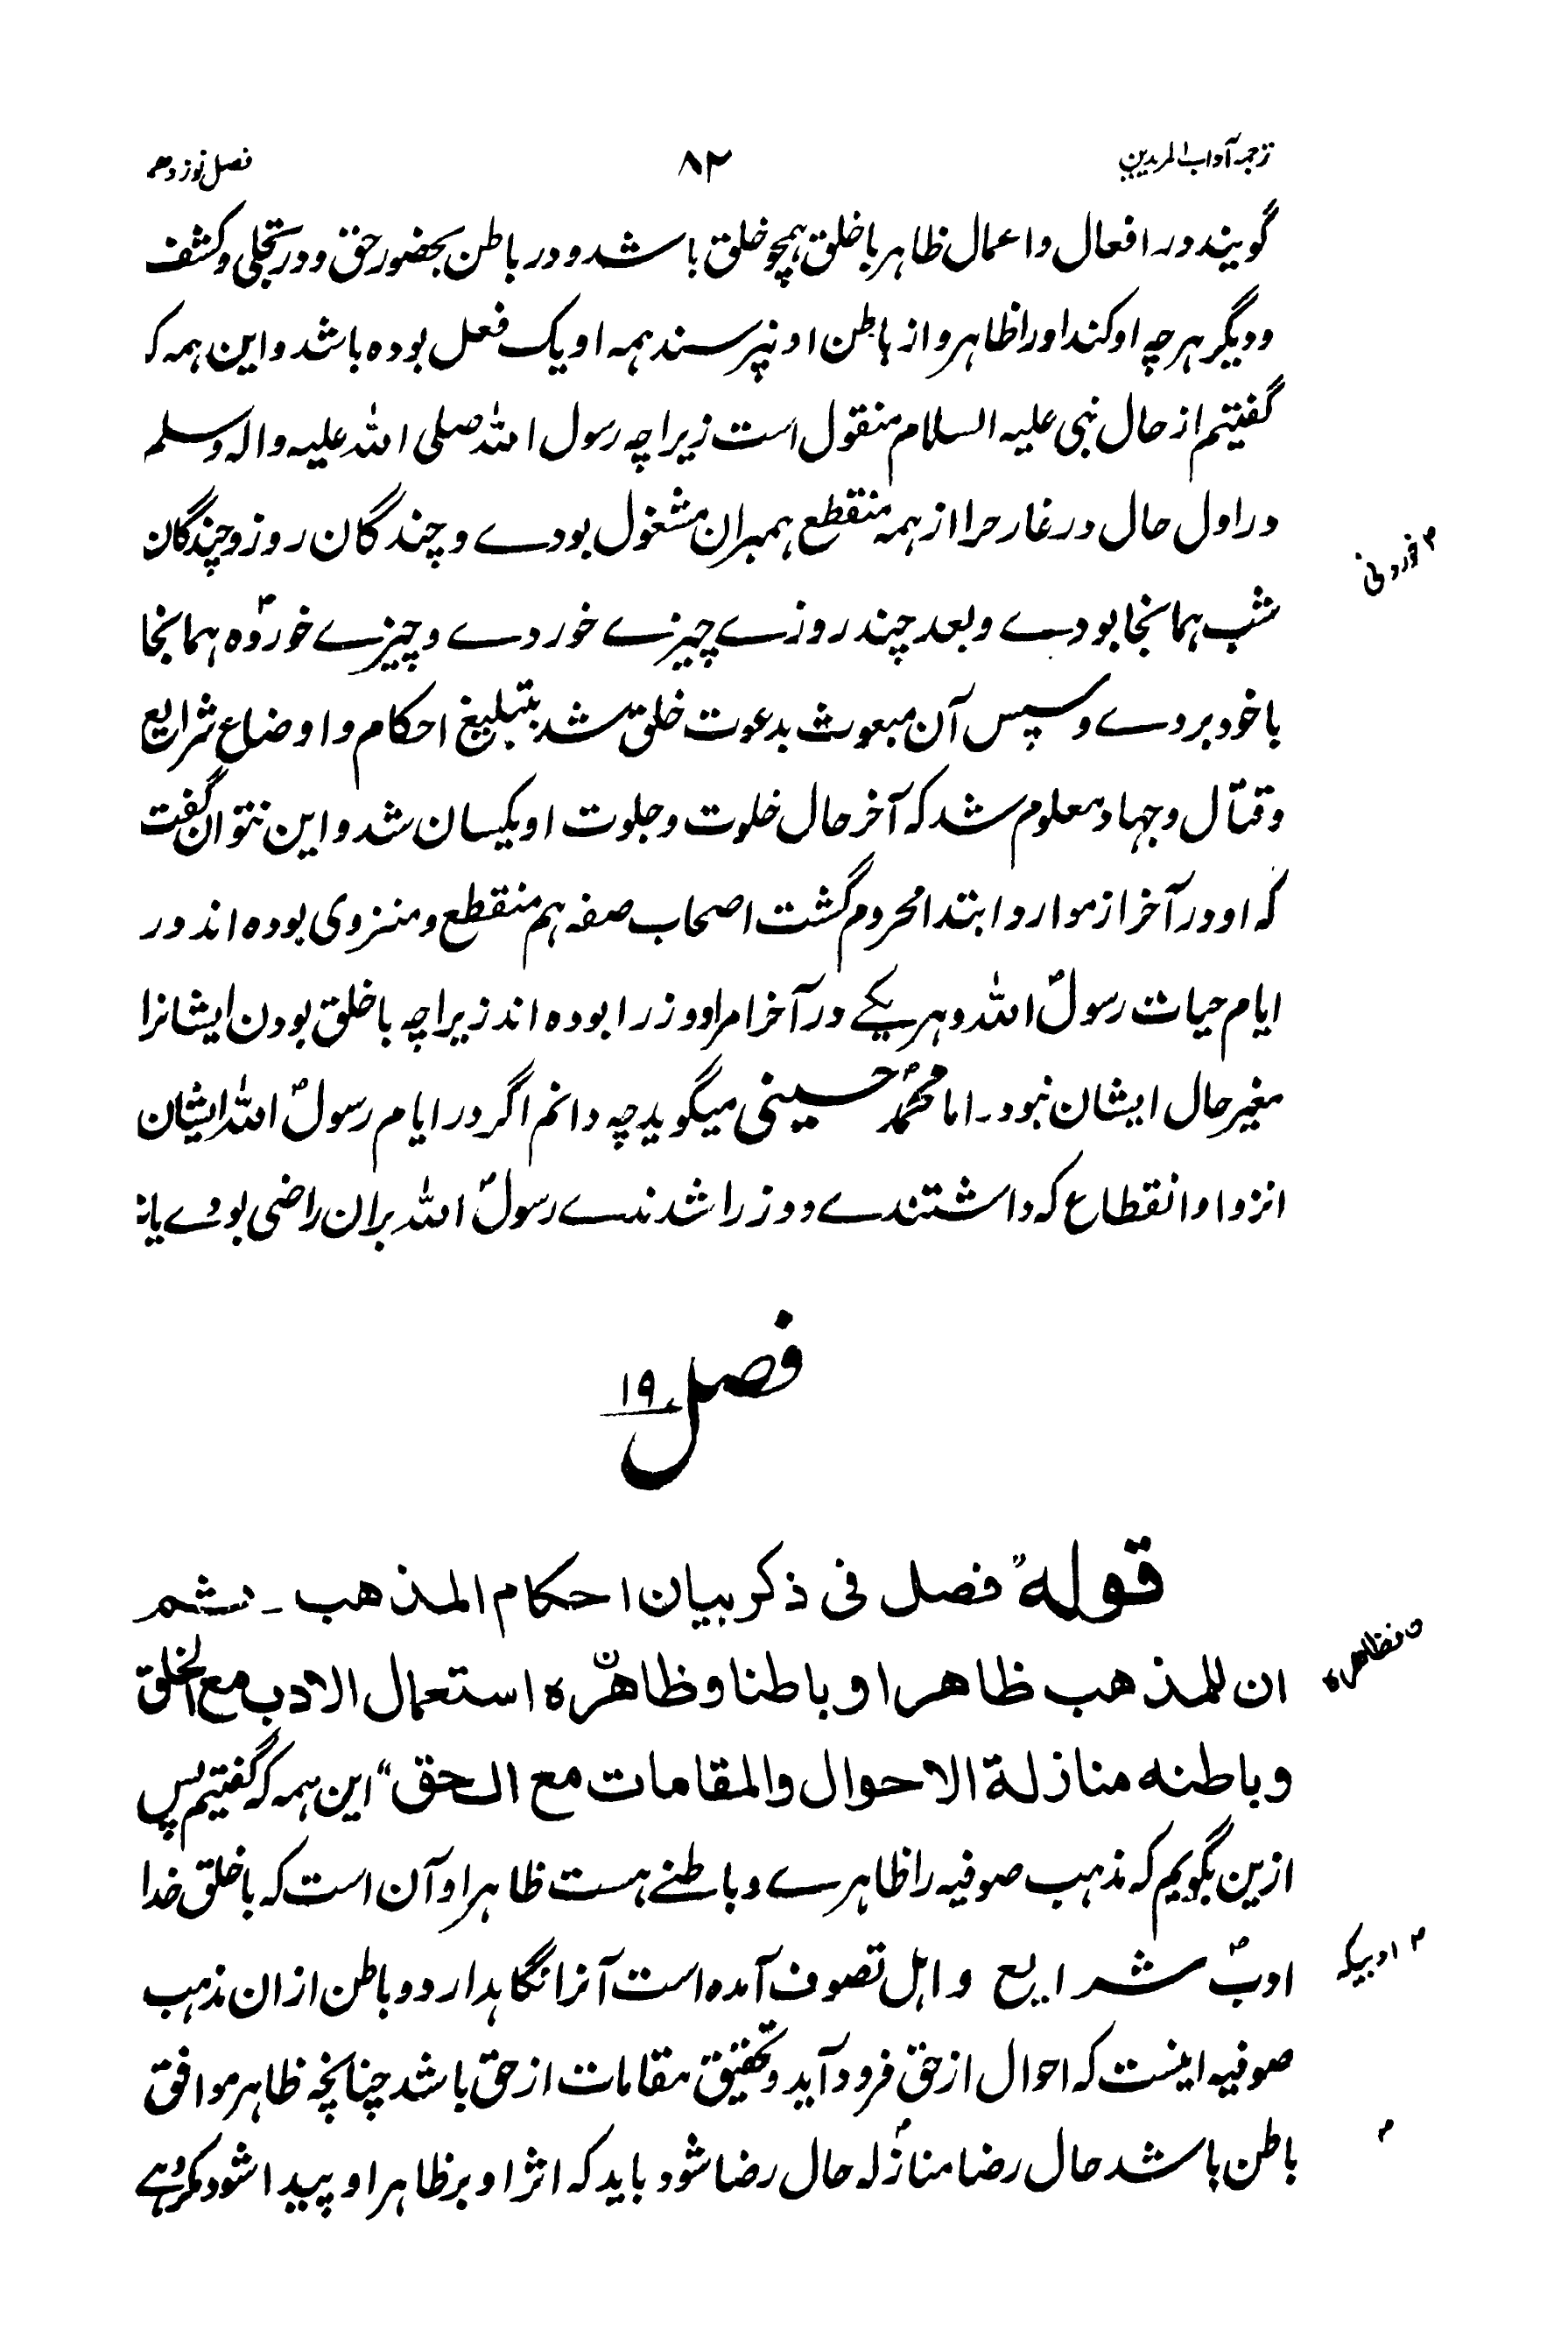 ترجمہ آداب المریدین ۸۲ فصل نوزدهم
گویند در افعال و اعمال ظاہر با خلق ہمچو خلق باشد و در باطن بحضور حق و در تجلی و کشف
و دیگر ہر چہ او کند او را ظاہر و از باطن او نپرسند ہمہ او یک فعل بودہ باشد و این ہمہ کہ
گفتیم از حال نبی علیہ السلام منقول است زیرا چہ رسول اللہ صلی اللہ علیہ والہ وسلم
در اول حال در غار حرا از ہمہ منقطع ہمبران مشغول بودے و چندگان روز و چندگان
۳ خوردنی
شب ہمانجا بودے و بعد چند روزے چیزے خوردے و چیزے خوردہ ہمانجا
با خود بردے و سپس آن مبعوث بدعوت خلق شد بتبلیغ احکام و اوضاع شرایع
و قتال و جہاد معلوم شد کہ آخر حال خلوت و جلوت او یکسان شد و این نتوان گفت
کہ او در آخر از موارد ابتدا محروم گشت اصحاب صفہ ہم منقطع و منزوی بودہ اند در
ایام حیات رسولؐ اللہ و ہر یکے در آخر امرا و وزرا بودہ اند زیرا چہ با خلق بودن ایشانرا
مغیر حال ایشان نبود۔ اما محمد حسینی میگوید چہ دانم اگر در ایام رسولؐ اللہ ایشان
انزوا و انقطاع کہ داشتندے و وزرا شدندے رسولؐ اللہ بران راضی بودے یا نہ
فصل ۱۹
قولہ" فصل فی ذکر بیان احکام المذهب ۔ ثم
ان للمذهب ظاهرا و باطنا و ظاهرہ استعمال الادب مع الخلق
ن فظاهرہ
و باطنہ منازلة الاحوال والمقامات مع الحق" این ہمہ کہ گفتیم پس
ازین بگویم کہ مذہب صوفیہ را ظاہرے و باطنے ہست ظاہر او آن است کہ با خلق خدا
ادب شرایع و اہل تصوف آمدہ است آنرا نگاہدارد و باطن ازان مذہب
۳ ادبیکہ
صوفیہ اینست کہ احوال از حق فرود آید و تحقیق مقامات از حق باشد چنانچہ ظاہر موافق
باطن باشد حال رضا منازلہ حال رضا شود باید کہ اثر او بر ظاہر او پیدا شود مکروہے